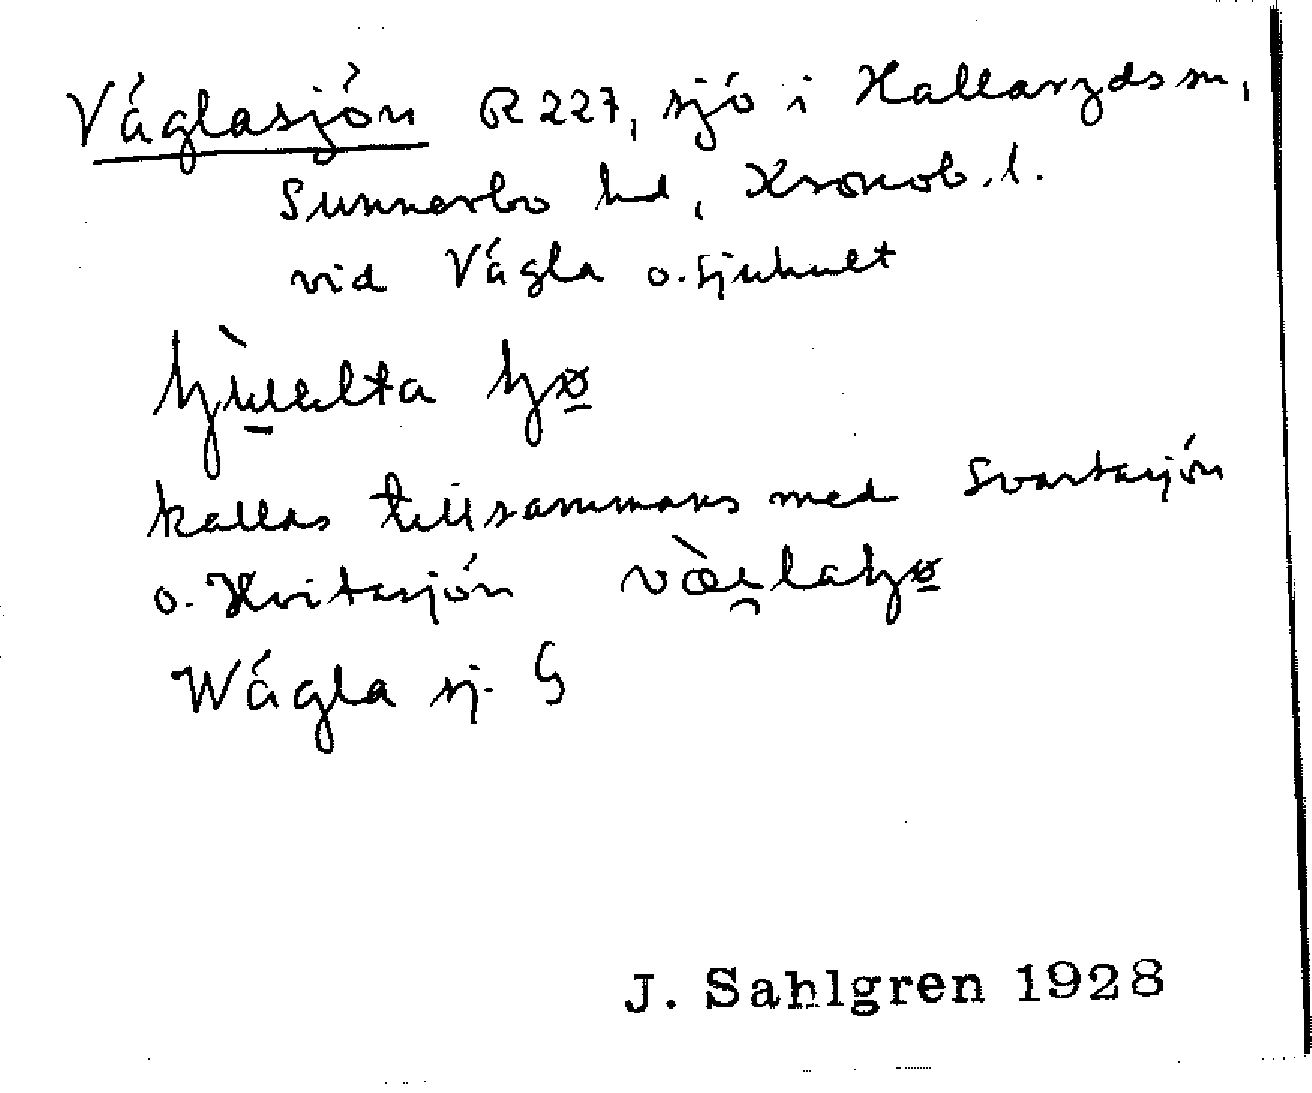 Váglasjón R 227, sjó i Hallarydssn,
Sunnerbo hd, Kronob. l.
vid Vágla o. Sjuhult
kallas tillsammans med Svartasjón
o. Hvitasjón
Wágla sj. G
J. Sahlgren 1928